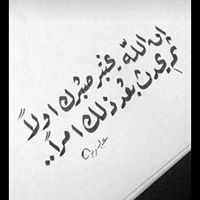 إن اللّٰه يختبر صبرك اولاً
ثم يحدث بعد ذلك امراً..